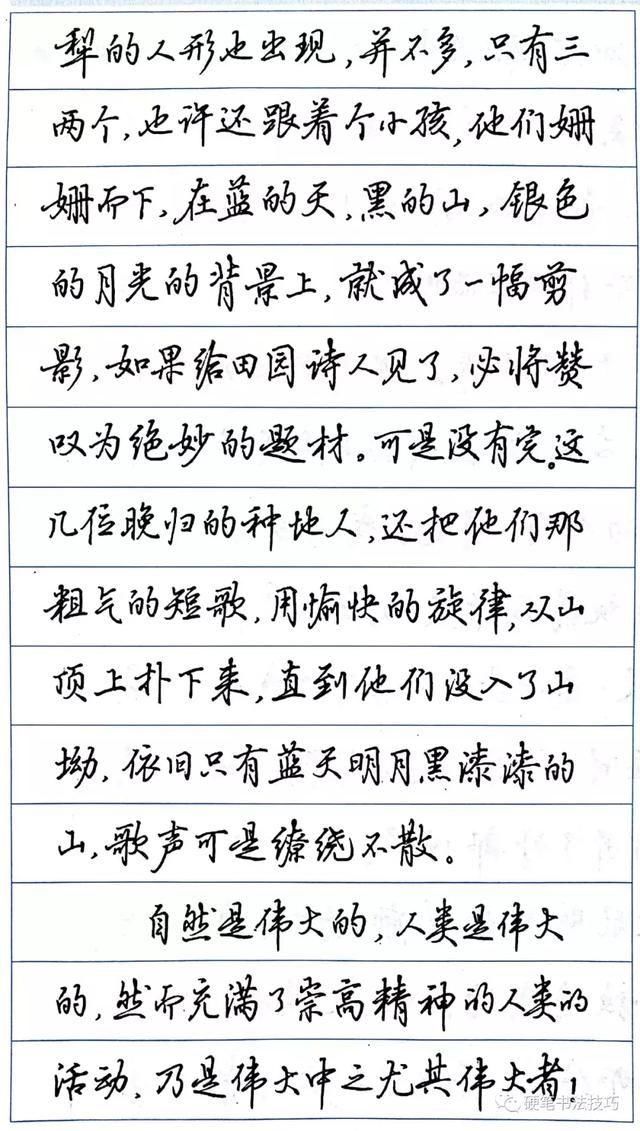 犁的人形也出现,并不多,只有三
两个,也许还跟着个小孩,他们姗
姗而下,在蓝的天,黑的山,银色
的月光的背景上,就成了一幅剪
影,如果给田园诗人见了,必将赞
叹为绝妙的题材。可是没有完。这
几位晚归的种地人,还把他们那
粗气的短歌,用愉快的旋律,从山
顶上扑下来,直到他们没入了山
坳,依旧只有蓝天明月,黑漆漆的
山,歌声可是缭绕不散。
自然是伟大的,人类是伟大
的,然而充满了崇高精神的人类的
活动,乃是伟大中之尤其伟大者!
硬笔书法技巧